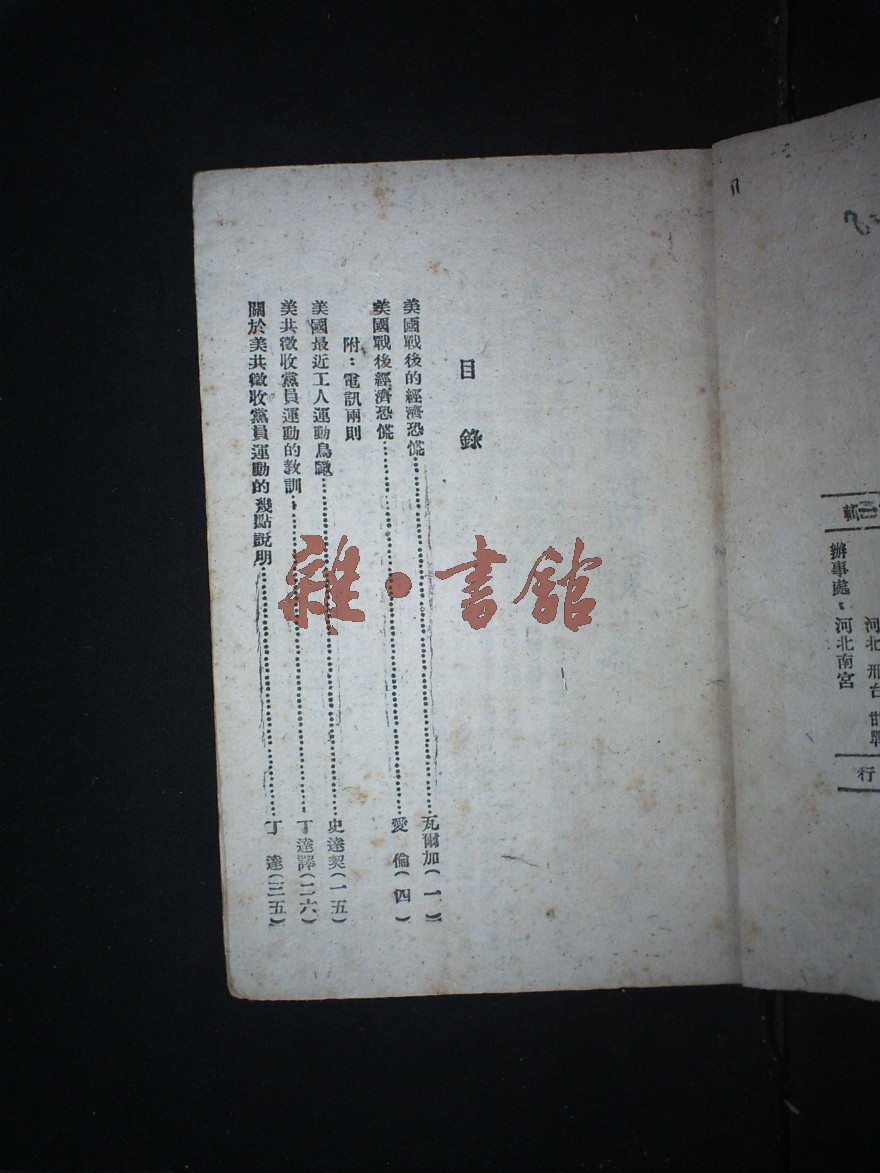 行
河北 邢台 邯鄲
辦事處：河北南宮
目錄
美國戰後的經濟恐慌……瓦爾加(一)
美國戰後經濟恐慌……愛倫(四)
附：電訊兩則
美國最近工人運動鳥瞰……史達契(一五)
美共徵收黨員運動的教訓……丁達譯(二六)
關於美共徵收黨員運動的幾點說明……丁達(三五)
雜·書館